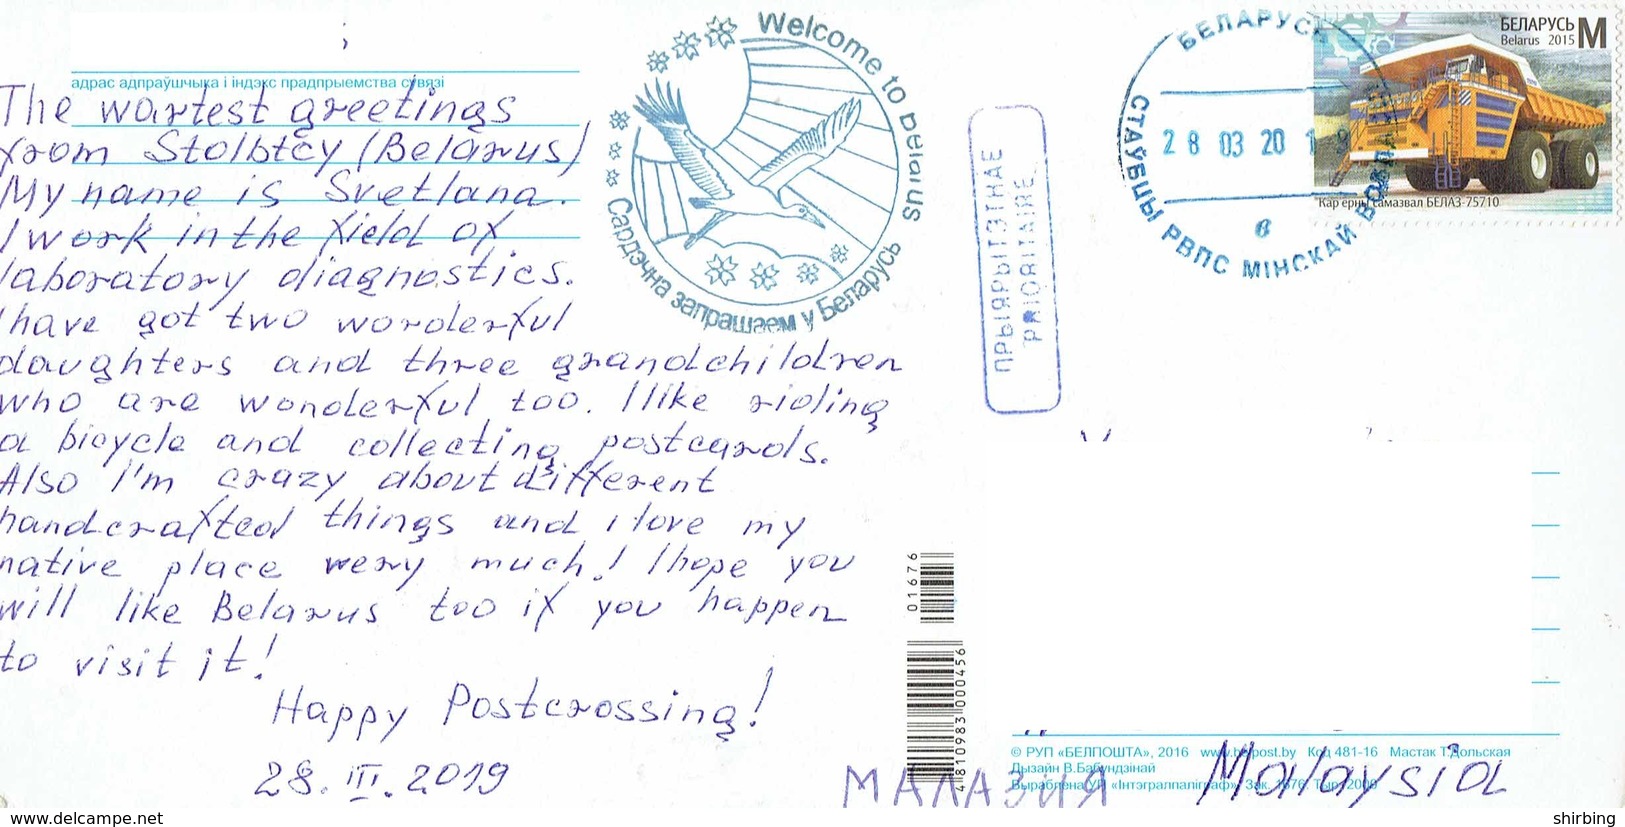 адрас адпраўшчыка і індэкс прадпрыемства сувязі
The wartest greetings
from Stolbtcy (Belarus)
My name is Svetlana.
I work in the field of
laboratory diagnostics.
I have got two wonderful
daughters and three grandchildren
who are wonderful too. I like riding
a bicycle and collecting postcards.
Also I'm crazy about different
handcrafted things and i love my
native place wery much! I hope you
will like Belarus too if you happen
to visit it!
Happy Postcrossing!
28. III. 2019
Welcome to Belarus
Сардэчна запрашаем у Беларусь
ПРЫЯРЫТЭТНАЕ
PRIORITAIRE
БЕЛАРУСЬ
28 03 20 19
СТАЎБЦЫ РВПС МІНСКАЙ ВОБЛ
в
БЕЛАРУСЬ М
Belarus 2015
Кар'ерны самазвал БЕЛАЗ-75710
01676
4 810983 000456
© РУП «БЕЛПОШТА», 2016 www.belpost.by Код 481-16 Мастак Т.Дольская
Дызайн В.Бабундзінай
Выраблена УП «Інтэгралпаліграф» Зак. 1676. Тыр. 2000
МАЛАЗИЯ Malaysia
www.delcampe.net
shirbing